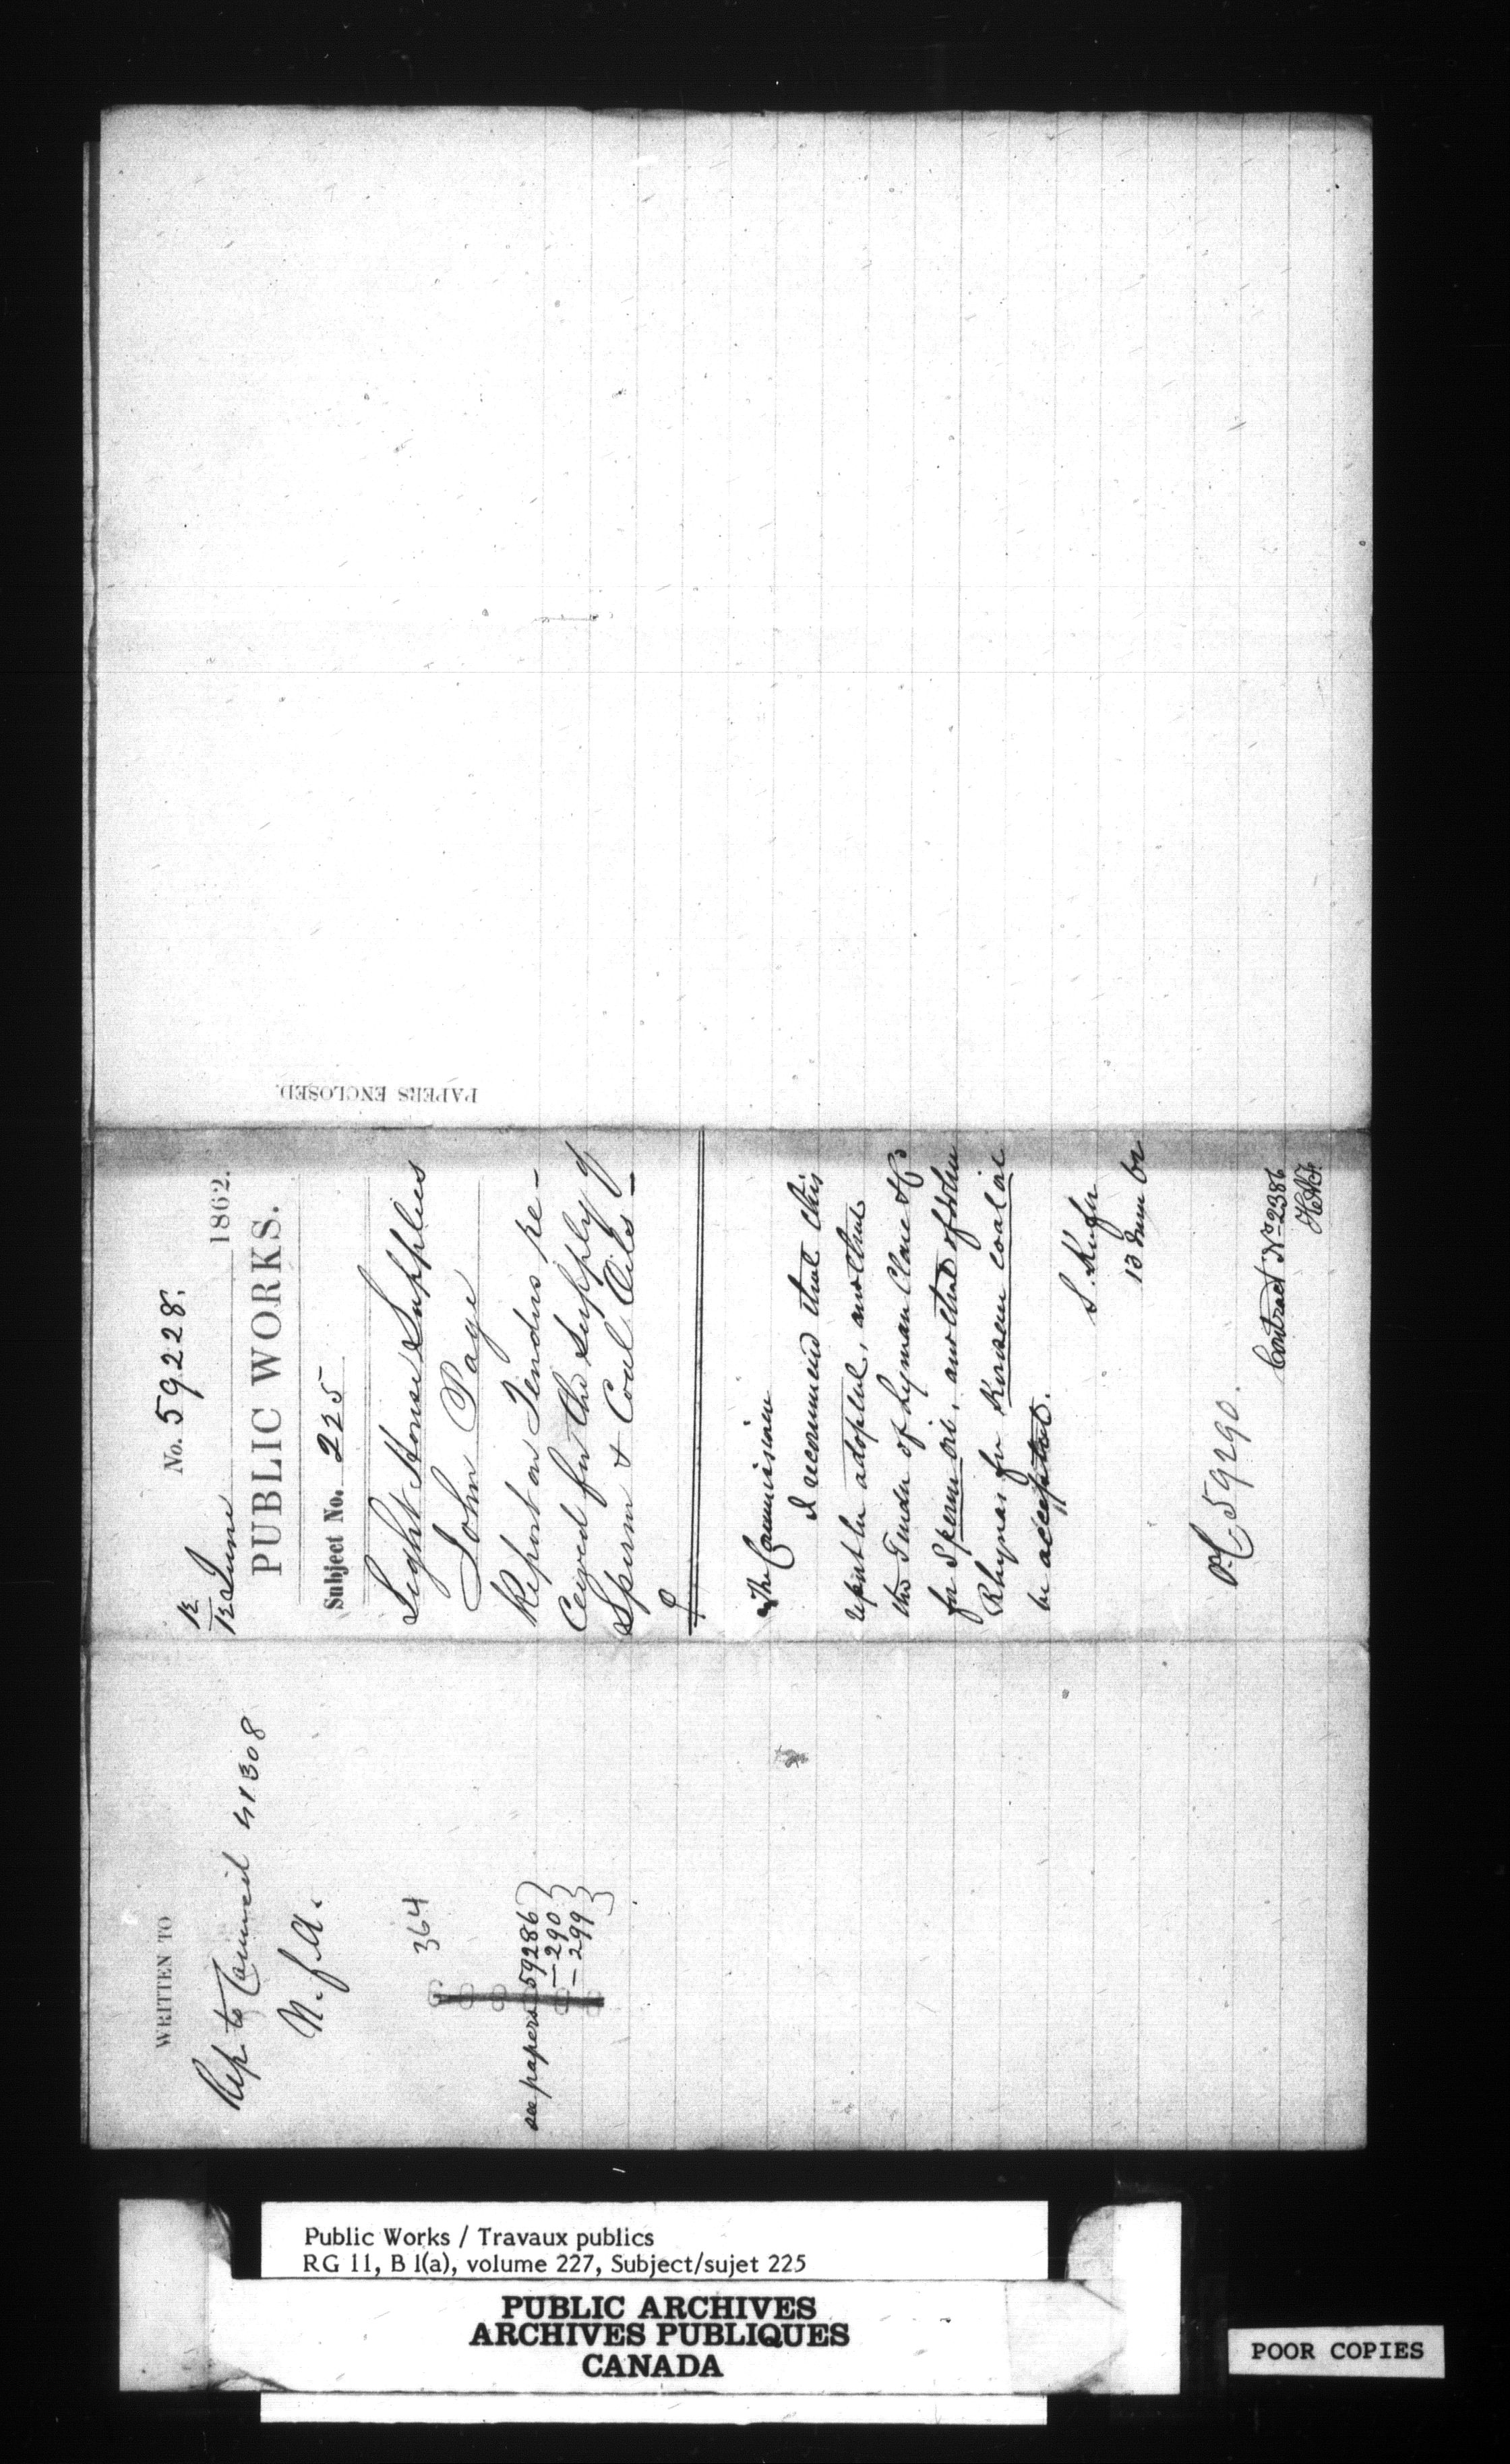 No. 59228.
12
12 June 1862.
PUBLIC WORKS.
Subject No. 225
Light House Supplies
John Page
Report on Tenders re-
ceived for the Supply of
Sperm & Coal Oils
The Commissioner
I recommend that this
report be adopted, and that
the Tender of Lyman Clare & Co
for Sperm oil, and that of John
Rhynas for Kerosene coal oil
be accepted.
S. Keefer
13 June 62
O.C. 59290.
Contract No 2386
PAPERS ENCLOSED.
WRITTEN TO
Rep. to Council 41308
N.f.A.
364
see papers 59286
— 290
— 299
Public Works / Travaux publics
RG 11, B 1(a), volume 227, Subject/sujet 225
PUBLIC ARCHIVES
ARCHIVES PUBLIQUES
CANADA
POOR COPIES